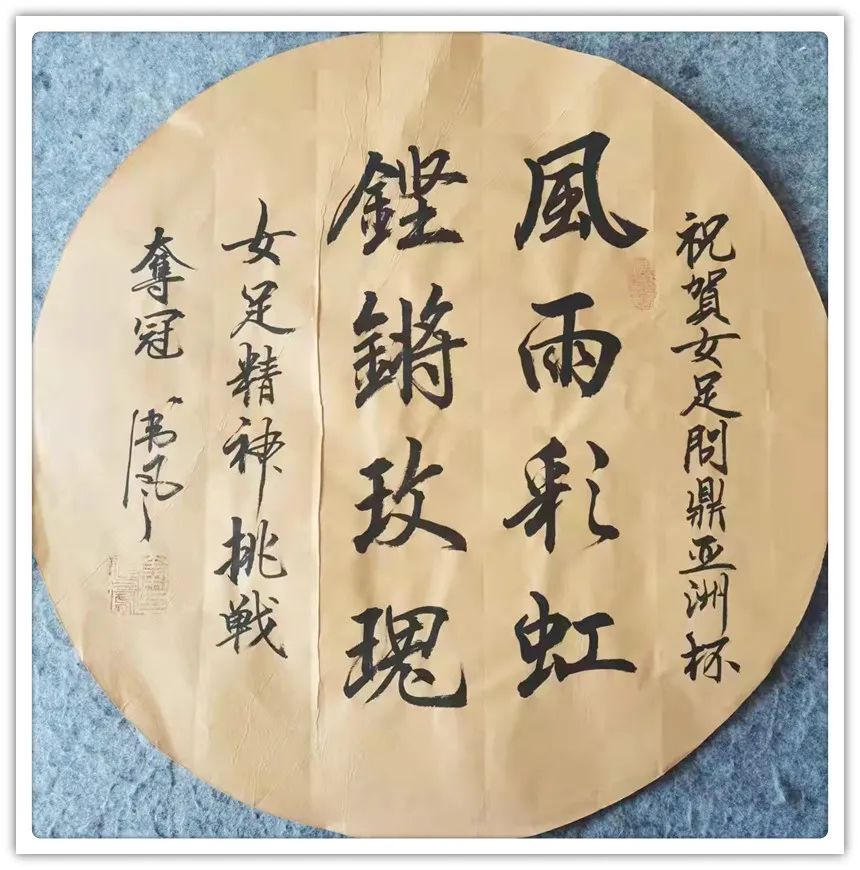 祝賀女足問鼎亚洲杯
風雨彩虹
鏗鏘玫瑰
女足精神挑戰
奪冠